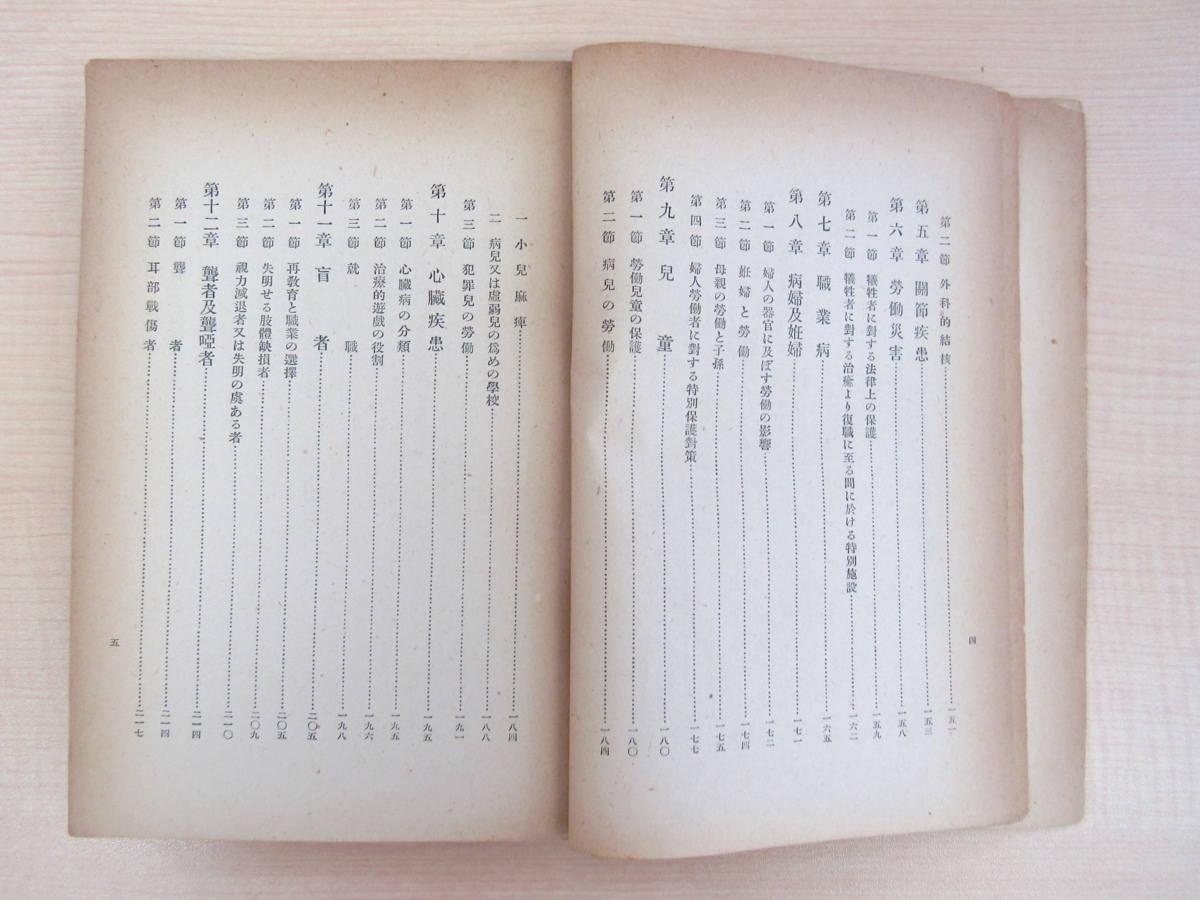 第二節 外科的結核……一五一
第五章 關節疾患……一五三
第六章 勞働災害……一五八
第一節 犧牲者に對する法律上の保護……一五九
第二節 犧牲者に對する治癒より復職に至る間に於ける特別施設……一六二
第七章 職業病……一六五
第八章 病婦及妊婦……一七一
第一節 婦人の器官に及ぼす勞働の影響……一七二
第二節 妊婦と勞働……一七四
第三節 母親の勞働と子孫……一七五
第四節 婦人勞働者に對する特別保護對策……一七七
第九章 兒童……一八〇
第一節 勞働兒童の保護……一八〇
第二節 病兒の勞働……一八四
四
一 小兒麻痺……一八四
二 病兒又は虛弱兒の爲めの學校……一八八
第三節 犯罪兒の勞働……一九一
第十章 心臟疾患……一九五
第一節 心臟病の分類……一九五
第二節 治療的遊戲の役割……一九六
第三節 就職……一九八
第十一章 盲者……二〇五
第一節 再敎育と職業の選擇……二〇五
第二節 失明せる肢體缺損者……二〇九
第三節 視力減退者又は失明の虞ある者……二一〇
第十二章 聾者及聾啞者……二一四
第一節 聾者……二一四
第二節 耳部戰傷者……二一七
五